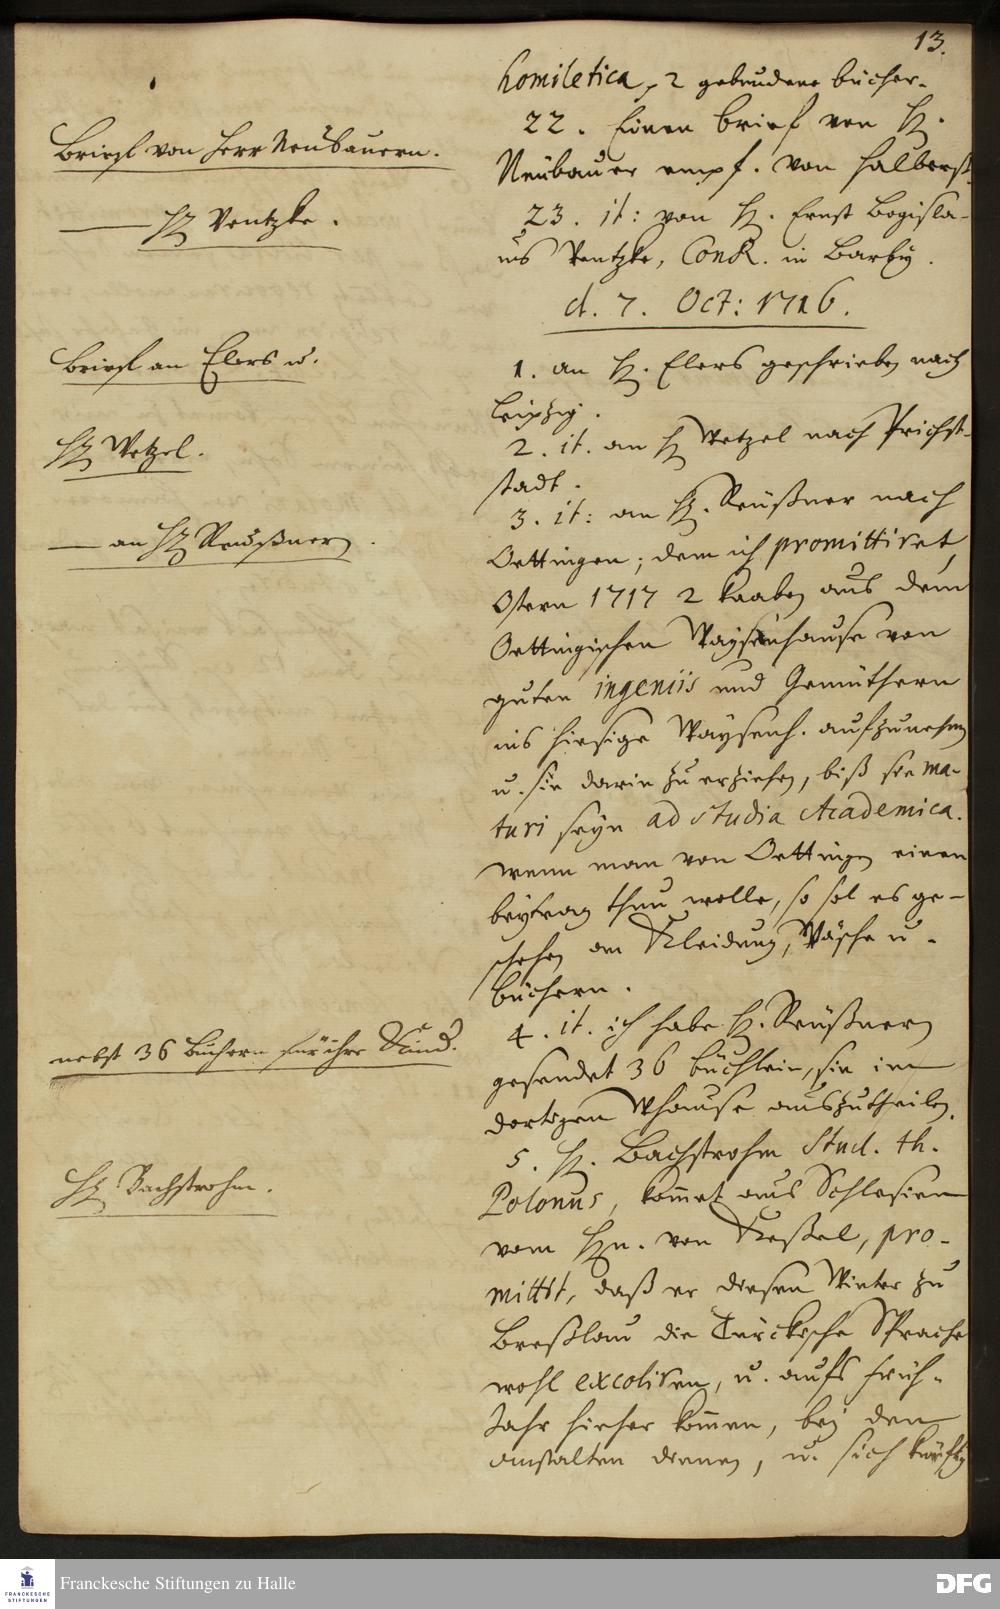 13.
homiletica, 2 gebundene bücher.
22. Einen brief von H.
Neubauer empf. von Halberst.
23. it: von H. Ernst Bogisla-
us Ventzke, ConR. in Barby.
d. 7. Oct: 1716.
1. an H. Elers geschrieben nach
Leipzig.
2. it. an H. Wetzel nach Prichst-
stadt.
3. it: an H. Reüßner nach
Oettingen; dem ich promittiret,
Ostern 1717 2 knaben aus dem
Oettingischen Waysenhause von
guten ingeniis und Gemüthern
ins hiesige Waysenh. aufzunehmen
u. sie darin zu erziehen, biß sie ma-
turi seyn ad studia Academica.
wenn man von Oettingen einen
beytrag thun wolle, so sol es ge-
schehen an Kleidung, Wäsche u.
büchern.
4. it. ich habe H. Reüßnern
gesendet 36 büchlein, sie im
dortigen Whause auszutheilen.
5. H. Bachstrohm Stud. th.
Polonus, kom̄et aus Schlesien
vom Hn. von Keßel, pro-
mittit, daß er diesen Winter zu
Breßlau die Türckische Sprache
wohl excoliren, u. aufs früh-
Jahr hieher kom̄en, bey den
anstalten dienen, u. sich kräftig
Briefe von Herr Neubauern.
— H Ventzke.
Briefe an Elers u.
H Wetzel.
— an H Reußnern.
nebst 36 Büchern für ihre Kind.
H Bachstrohm.
Franckesche Stiftungen zu Halle
FRANCKESCHE
STIFTUNGEN
DFG